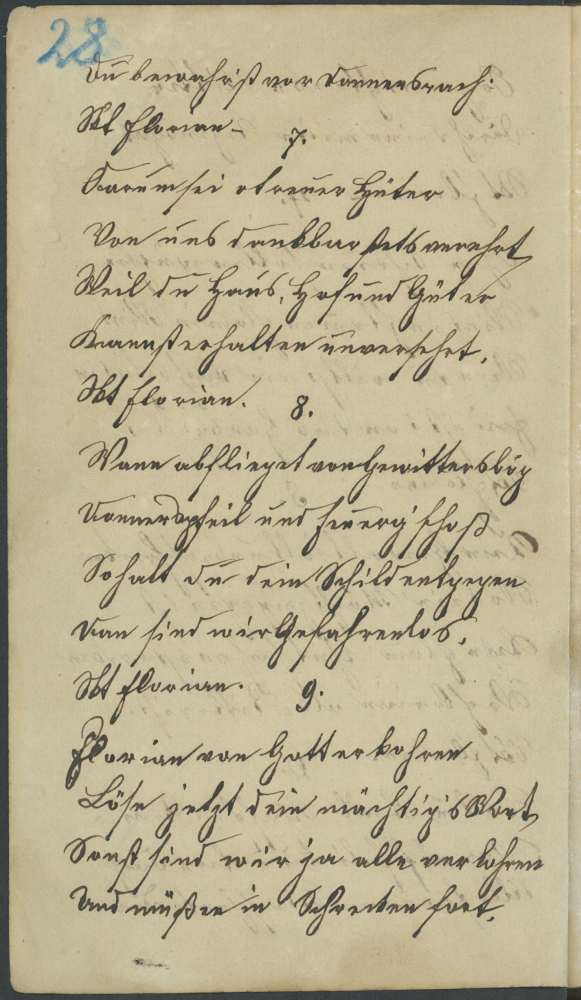 28
Du bewahrst vor Donnensrach.
Skt Florian.
7.
Darum sei o treuer Hüter
Von uns dankbar stets verehrt
Weil du Haus, Hof und Güter
Kannst erhalten unversehrt,
Skt Florian.
8.
Wann abflieget von
Donnerspfeil und Feuerg'schoß
So halt du dein Schild entgegen
Dan sind wir Gefahrenlos,
Skt Florian.
9.
Florian von Gott erkohren
Löse jetzt dein mächtig's Wort
Sonst sind wir ja alle verlohren
Und müßen in Schrecken fort.